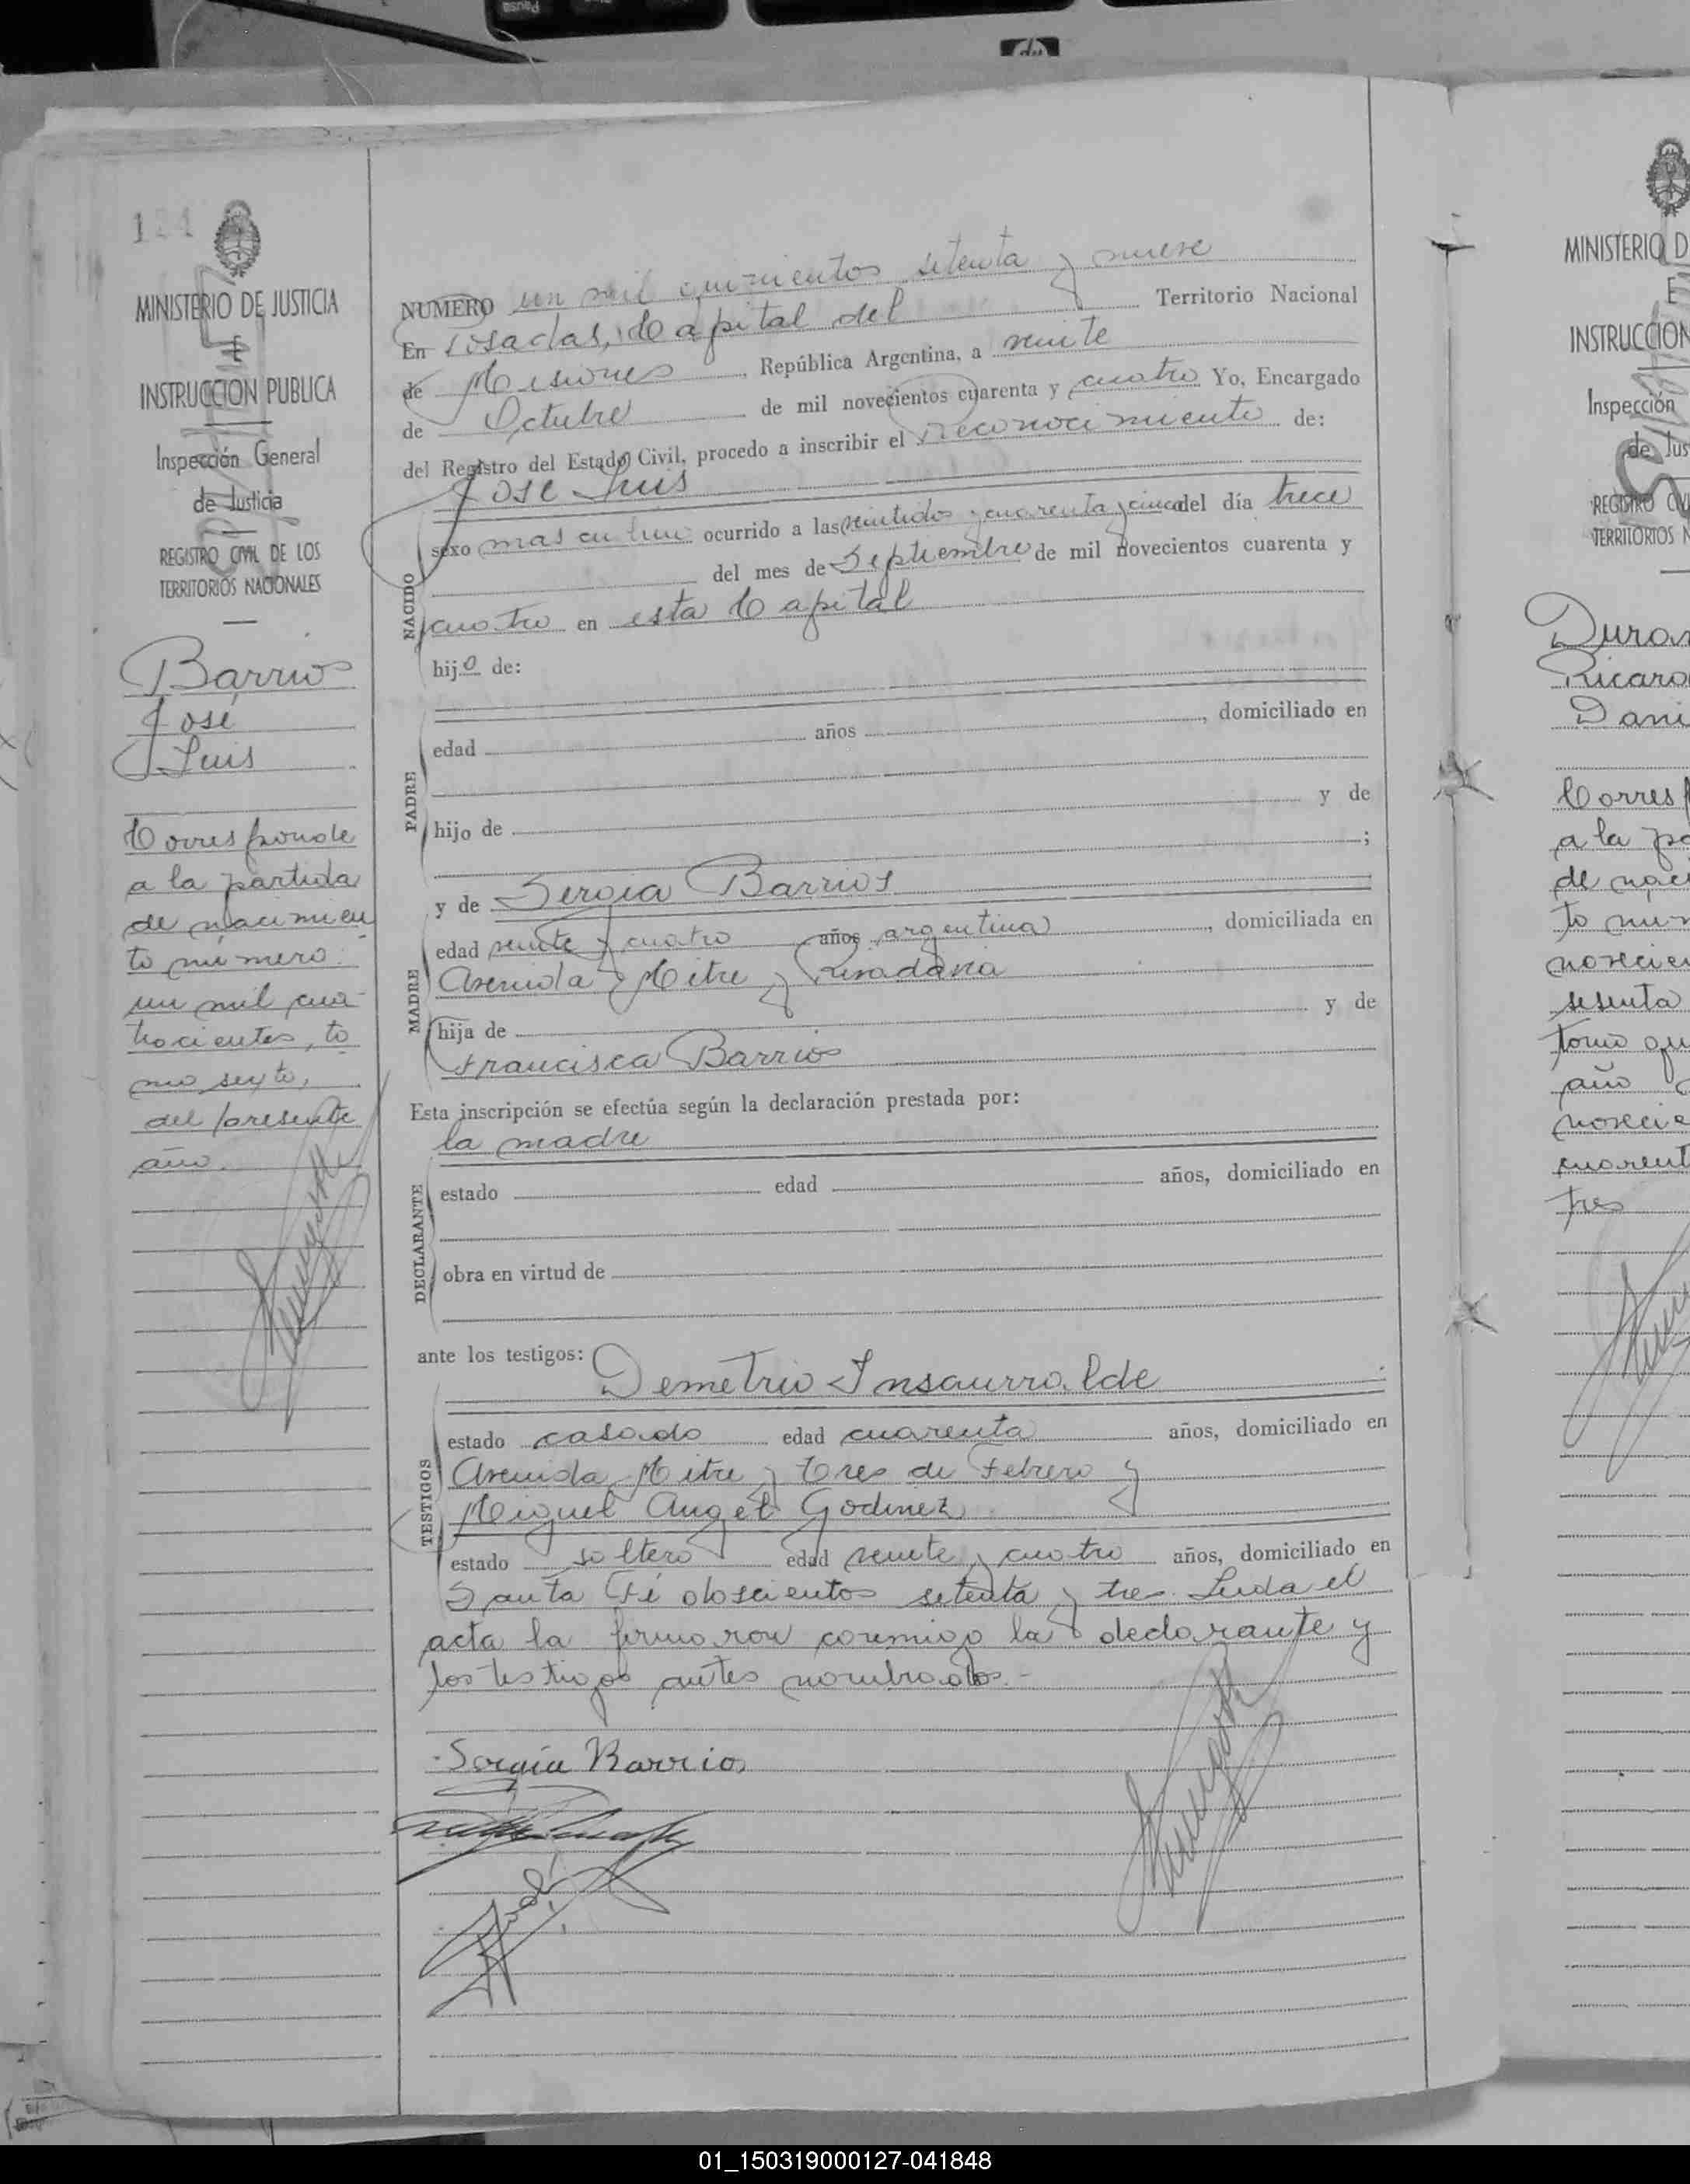 Pausa
hp
124
MINISTERIO DE JUSTICIA
E
INSTRUCCION PUBLICA
Inspección General
de Justicia
REGISTRO CIVIL DE LOS
TERRITORIOS NACIONALES
Barrios
José
Luis
Corresponde
a la partida
de nacimien
to número
un mil cua
trocientos, to
mo sexto,
del presente
año.
NUMERO un mil quinientos setenta y nueve
En Posadas, Capital del Territorio Nacional
de Misiones, República Argentina, a veinte
de Octubre de mil novecientos cuarenta y cuatro Yo, Encargado
del Registro del Estado Civil, procedo a inscribir el Reconocimiento de:
José Luis
NACIDO
sexo masculino ocurrido a las veintidos y cuarenta y cinco del día trece
del mes de Septiembre de mil novecientos cuarenta y
cuatro en esta Capital
hijo de:
PADRE
edad años , domiciliado en
hijo de y de
;
MADRE
y de Sergia Barrios
edad veinte y cuatro años argentina , domiciliada en
Avenida Mitre y Rivadavia
hija de y de
Francisca Barrios
Esta inscripción se efectúa según la declaración prestada por:
la madre
DECLARANTE
estado edad años, domiciliado en
obra en virtud de
ante los testigos:
Demetrio Insaurralde
TESTIGOS
estado casado edad cuarenta años, domiciliado en
Avenida Mitre y Tres de Febrero y
Miguel Angel Godinez
estado soltero edad veinte y cuatro años, domiciliado en
Santa Fé doscientos setenta y tres. Leida el
acta la firmaron conmigo la declarante y
los testigos antes nombrados.-
Sergia Barrios
MINISTERIO D
E
INSTRUCCION
Inspección
de Jus
REGISTRO CIV
TERRITORIOS N
Duran
Ricard
Dani
Corresp
a la pa
de naci
to núm
novecien
sesenta
tomo qu
año
novecie
cuarent
tres
01_150319000127-041848